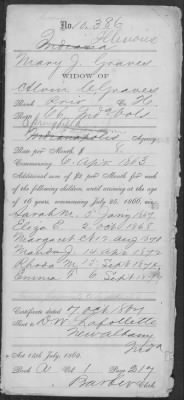 No. 10,386
Indiana Illinois
Mary J. Graves
WIDOW OF
Alvin C Graves
Rank Priv Co. H.
Regt. 66 Ind Vols
Indianapolis Agency
Rate per Month, $ 8
Commencing 6 Apr 1863
Additional sum of $2 per Month for each
of the following children, until arriving at the age
of 16 years, commencing 25 July, 1866, viz:
Sarah M. 5 Jany 1867
Eliza E. 2 Oct 1868
Margaret C. 17 Aug 1871
Rhoda M. 15 Sept 1875
Emma F. 6 Sept
Certificate dated 7 Oct 1867
Sent to D W Lafollette
New Albany
Ind
Act 14th July, 1862.
Book A Vol 1 Page 217